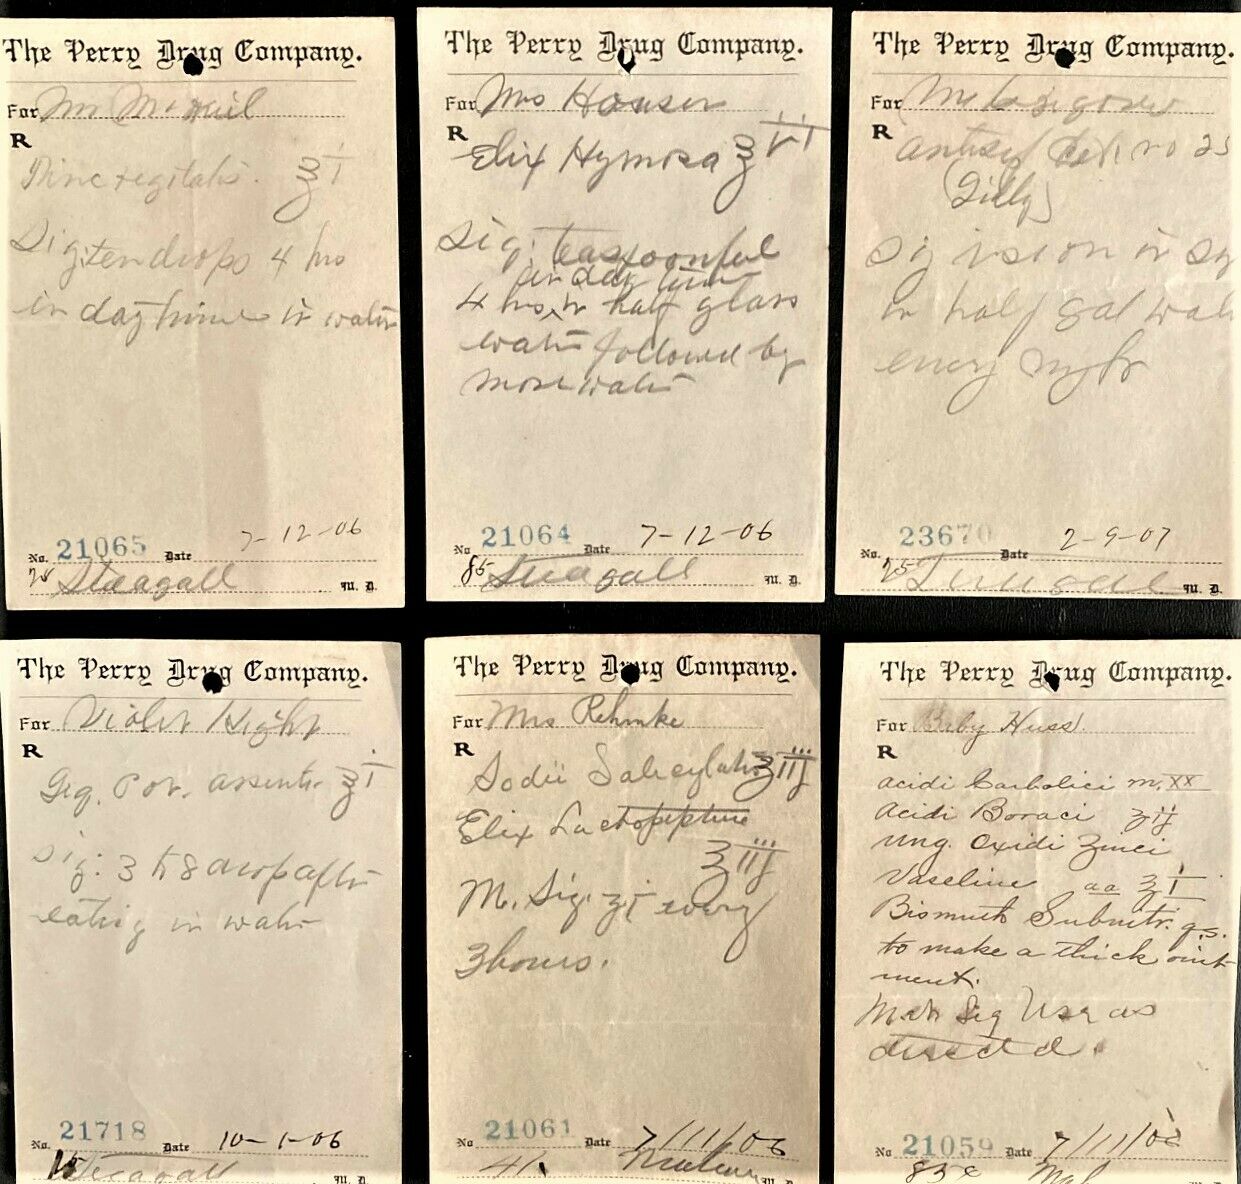 The Perry Drug Company.
For Mr McNeil
R
Tinc Digitalis. ℥ i
Sig. ten drops 4 hrs
in day time in water
No. 21065 Date 7-12-06
Steagall M. D.
The Perry Drug Company.
For Mrs Hauser
R
Elix Hymosa ℥ vi
Sig: teaspoonful
in day time
4 hrs ^ in half glass
water followed by
more water
No 21064 Date 7-12-06
85 Steagall M. D.
The Perry Drug Company.
For
R
antisep no 25
(Lilly)
Sig
in half gal wat
every
No. 23670 Date 2-9-07
25 M. D.
The Perry Drug Company.
For Violet Hight
R
Liq. Pot. arsenit. ℥ i
Sig: 3 to 8 drops after
eating in water
No. 21718 Date 10-1-06
Steagall M. D.
The Perry Drug Company.
For Mrs Rehmke
R
Sodii Salicylatis ʒ iij
Elix Lactopeptine
℥ iij
M. Sig. ʒ i every
3 hours.
No 21061 Date 7/11/06
M. D.
The Perry Drug Company.
For Baby Huss.
R
acidi Carbolici m. XX
Acidi Boraci ʒ ij
Ung. Oxidi Zinci
Vaseline aa ℥ i
Bismuth Subnitr. q.s.
to make a thick oint-
ment.
Sig Use as
directed.
No 21059 Date 7/11/06
85¢